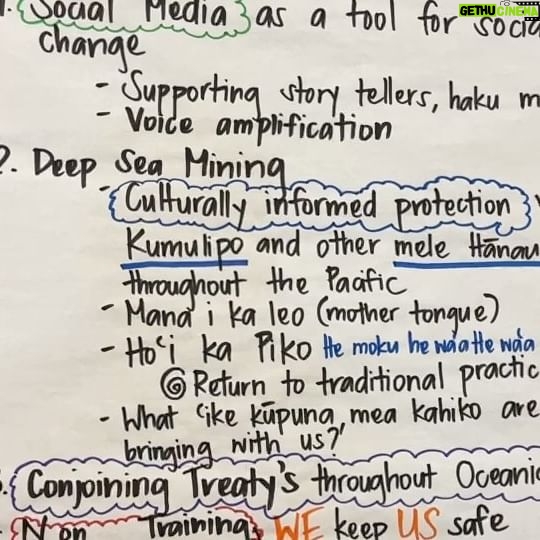 GETHUCINEMA
Social Media as a tool for
change
- Supporting story tellers, haku
- Voice amplification
Deep Sea Mining
- Culturally informed protection
Kumulipo and other mele Hānau
throughout the Pacific
- Mana i ka leo (mother tongue)
- Hoʻi ka Piko He moku he waʻa He waʻa
Return to traditional
- What ʻike kūpuna, mea kahiko are
bringing with us?
Conjoining Treaty's throughout
Training, WE keep US safe